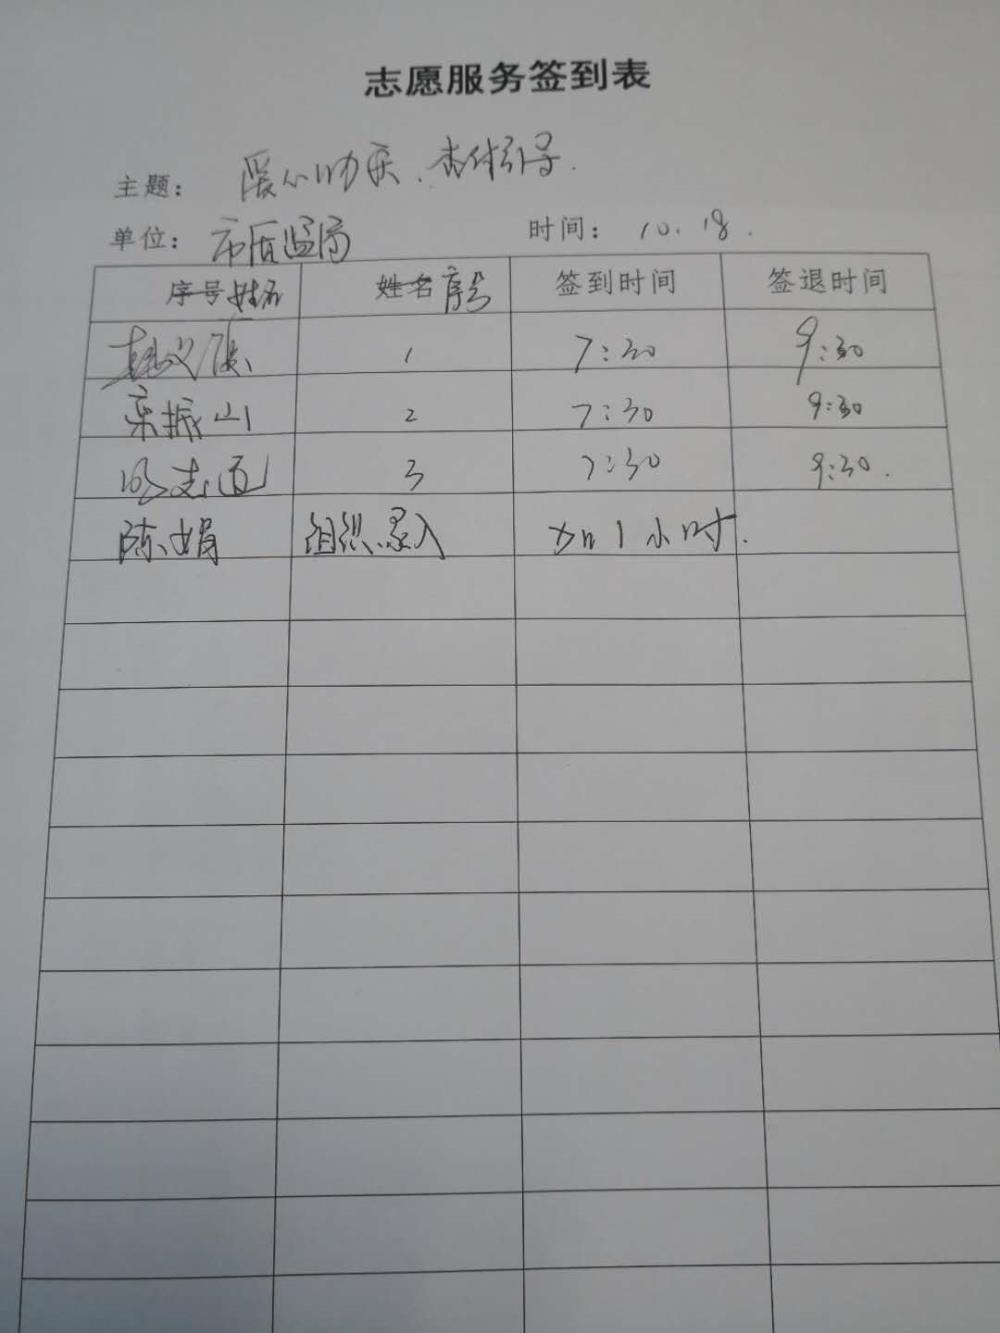 志愿服务签到表
主题： 暖心助医.
单位： 市质监局 时间： 10.18.
序号 姓名 姓名 序号 签到时间 签退时间
1 7:30 9:30
栾振山 2 7:30 9:30
志道 3 7:30 9:30.
陈娟 组织、录入 加1小时.